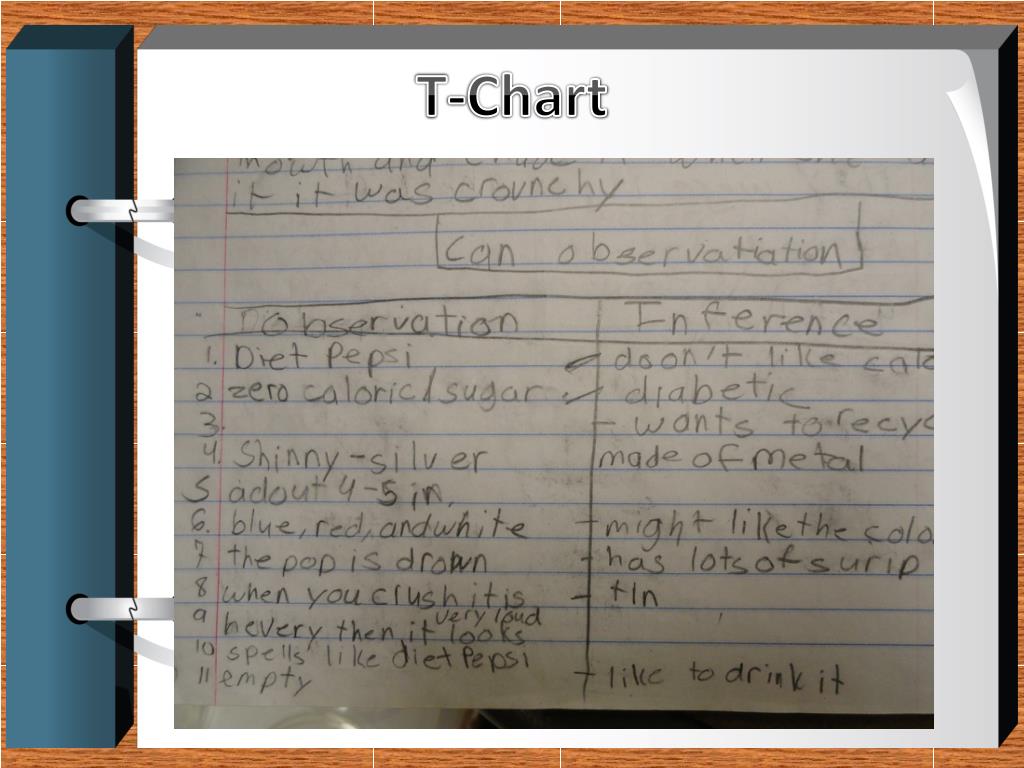 T-Chart
mowth and
it it was crovnchy
Can observatiation
Observation Inference
1. Diet Pepsi doon't like calo
2 zero caloric/sugar. diabetic
3. - wants to recyc
4. Shinny-silver made of metal
5 adout 4-5 in.
6. blue, red, and white - might like the colo
7 the pop is drown - has lots of surip
8 when you clush it is - tin
very loud
9 hevery then it looks
10 spells like diet Pepsi
11 empty - like to drink it